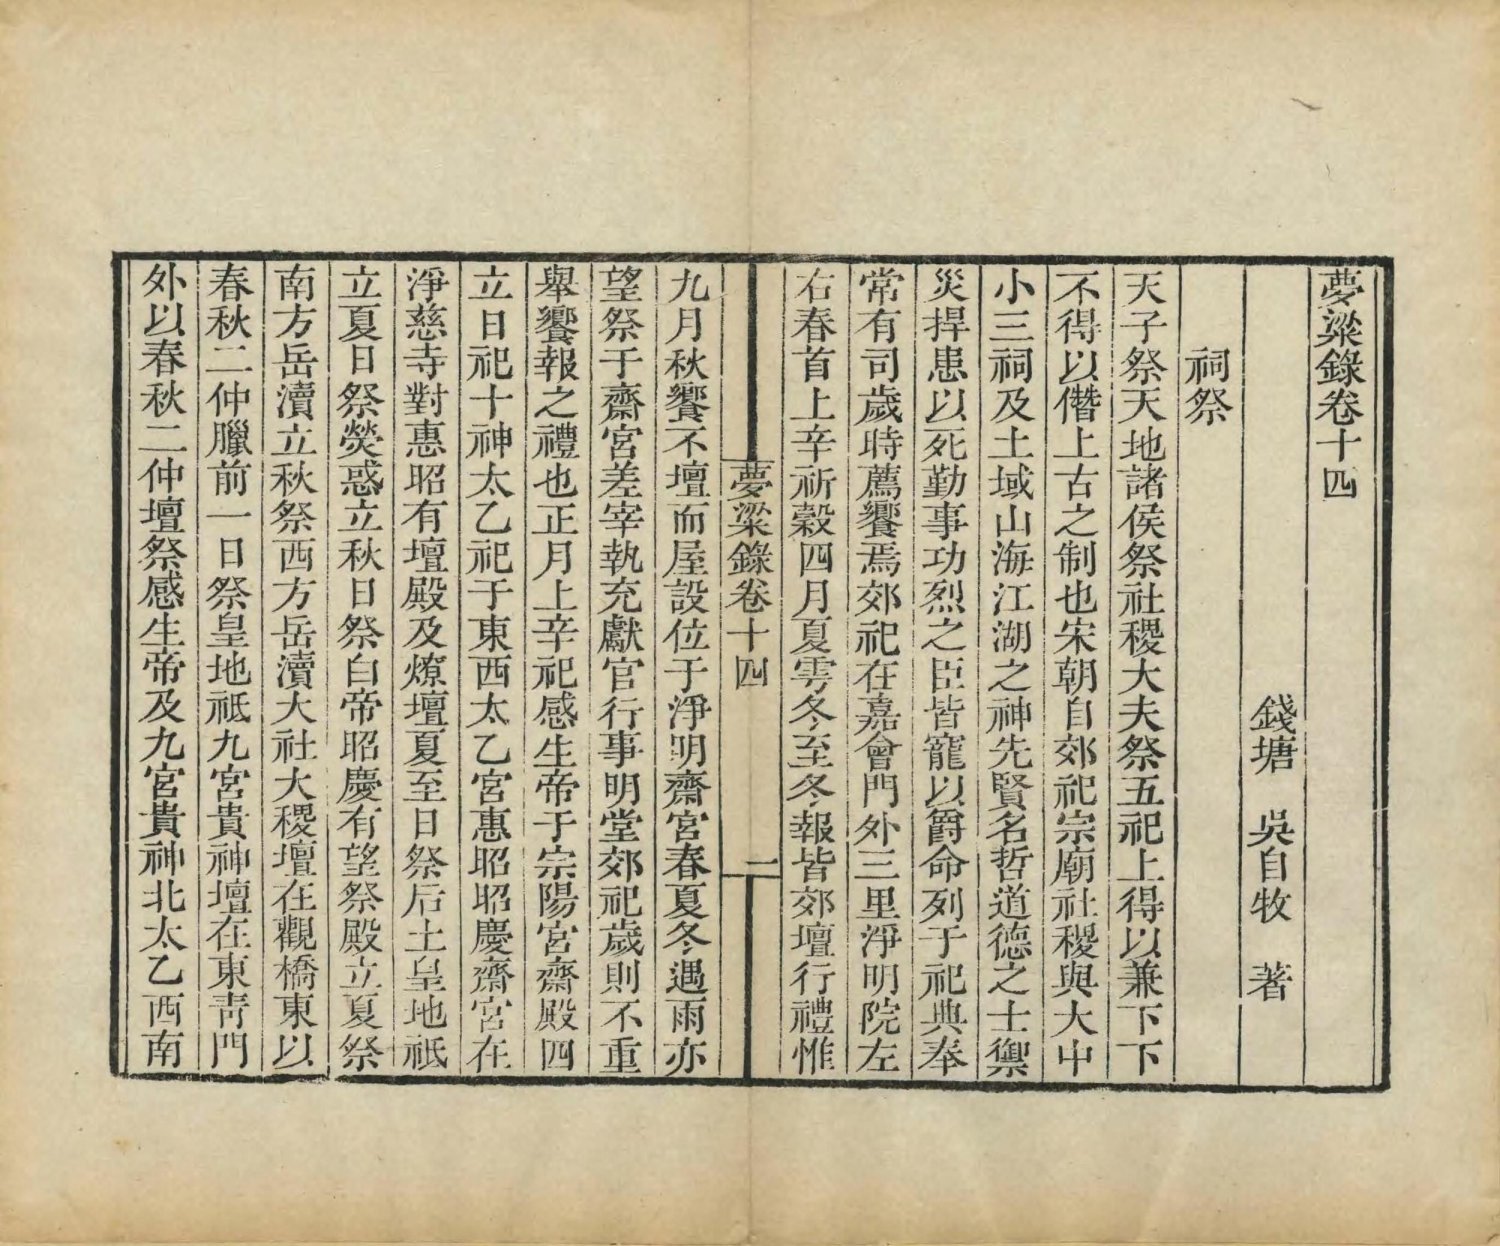 夢粱錄卷十四
錢塘 吳自牧 著
祠祭
天子祭天地諸侯祭社稷大夫祭五祀上得以兼下下
不得以僭上古之制也宋朝自郊祀宗廟社稷與大中
小三祠及土域山海江湖之神先賢名哲道德之士禦
災捍患以死勤事功烈之臣皆寵以爵命列于祀典奉
常有司歲時薦饗焉郊祀在嘉會門外三里淨明院左
右春首上辛祈穀四月夏雩冬至冬報皆郊壇行禮惟
夢粱錄卷十四 一
九月秋饗不壇而屋設位于淨明齋宮春夏冬遇雨亦
望祭于齋宮差宰執充獻官行事明堂郊祀歲則不重
舉饗報之禮也正月上辛祀感生帝于宗陽宮齋殿四
立日祀十神太乙祀于東西太乙宮惠昭昭慶齋宮在
淨慈寺對惠昭有壇殿及燎壇夏至日祭后土皇地祇
立夏日祭熒惑立秋日祭白帝昭慶有望祭殿立夏祭
南方岳瀆立秋祭西方岳瀆大社大稷壇在觀橋東以
春秋二仲臘前一日祭皇地祗九宮貴神壇在東靑門
外以春秋二仲壇祭感生帝及九宮貴神北太乙西南